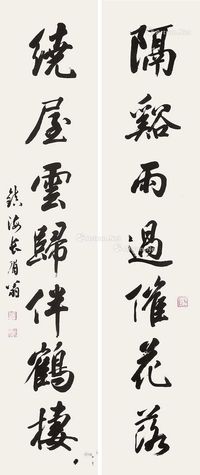 隔谿雨過催花落
繞屋雲歸伴鶴棲
鎮海長眉翁